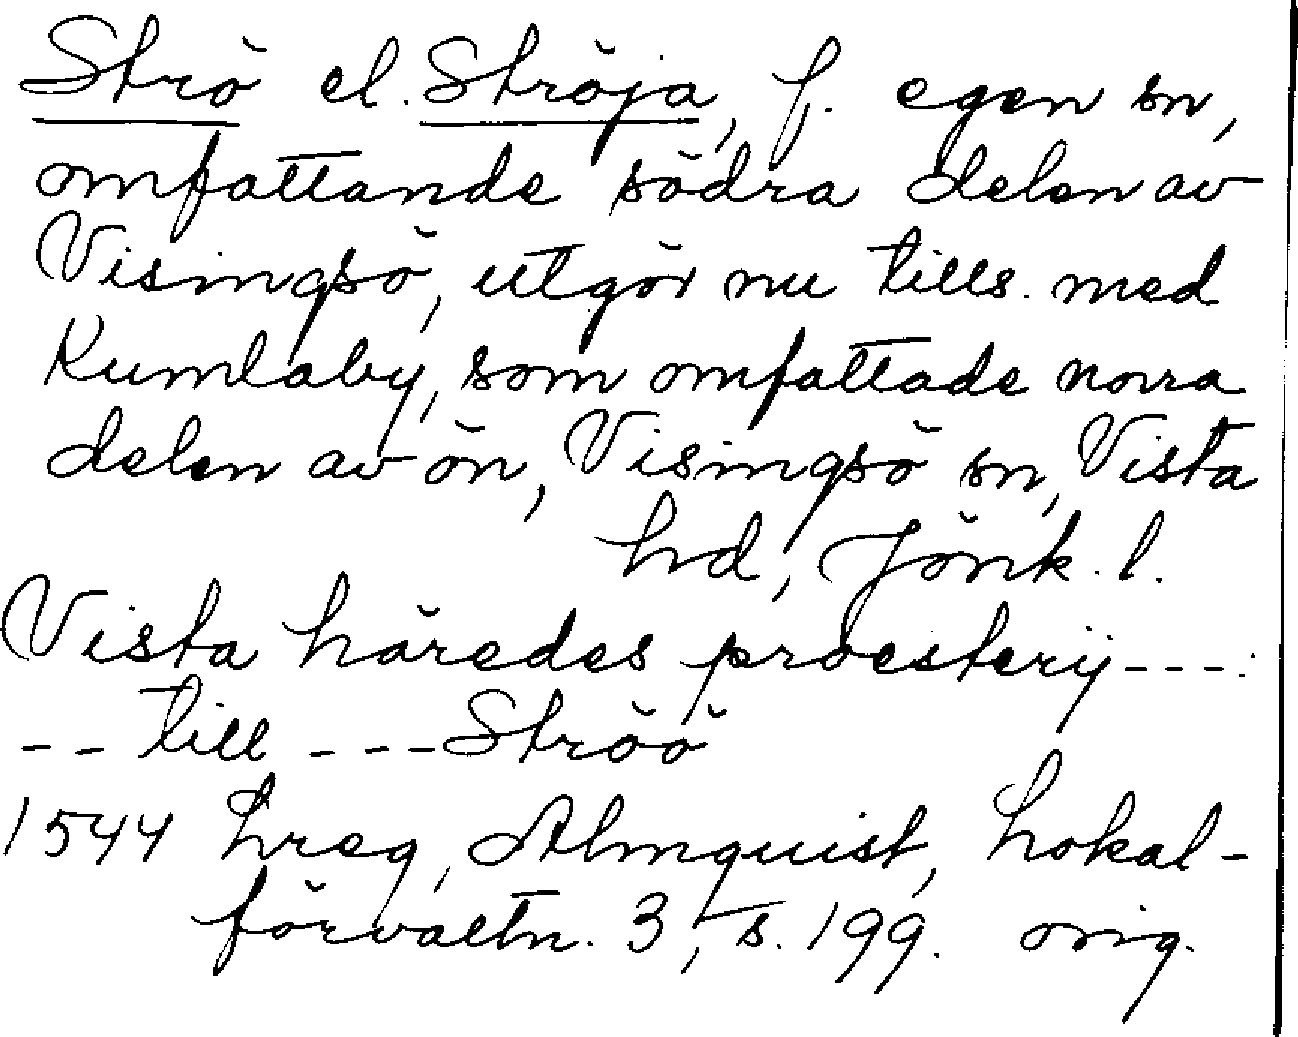 Strö el. Ströja, f. egen sn,
omfattande södra delen av
Visingsö, utgör nu tills. med
Kumlaby, som omfattade norra
delen av ön, Visingsö sn, Vista
hd, Jönk. l.
Vista häredes proesterij ---.
-- till --- Ströö
1544 hreg, Almquist, Lokal-
förvaltn. 3, s. 199. orig.